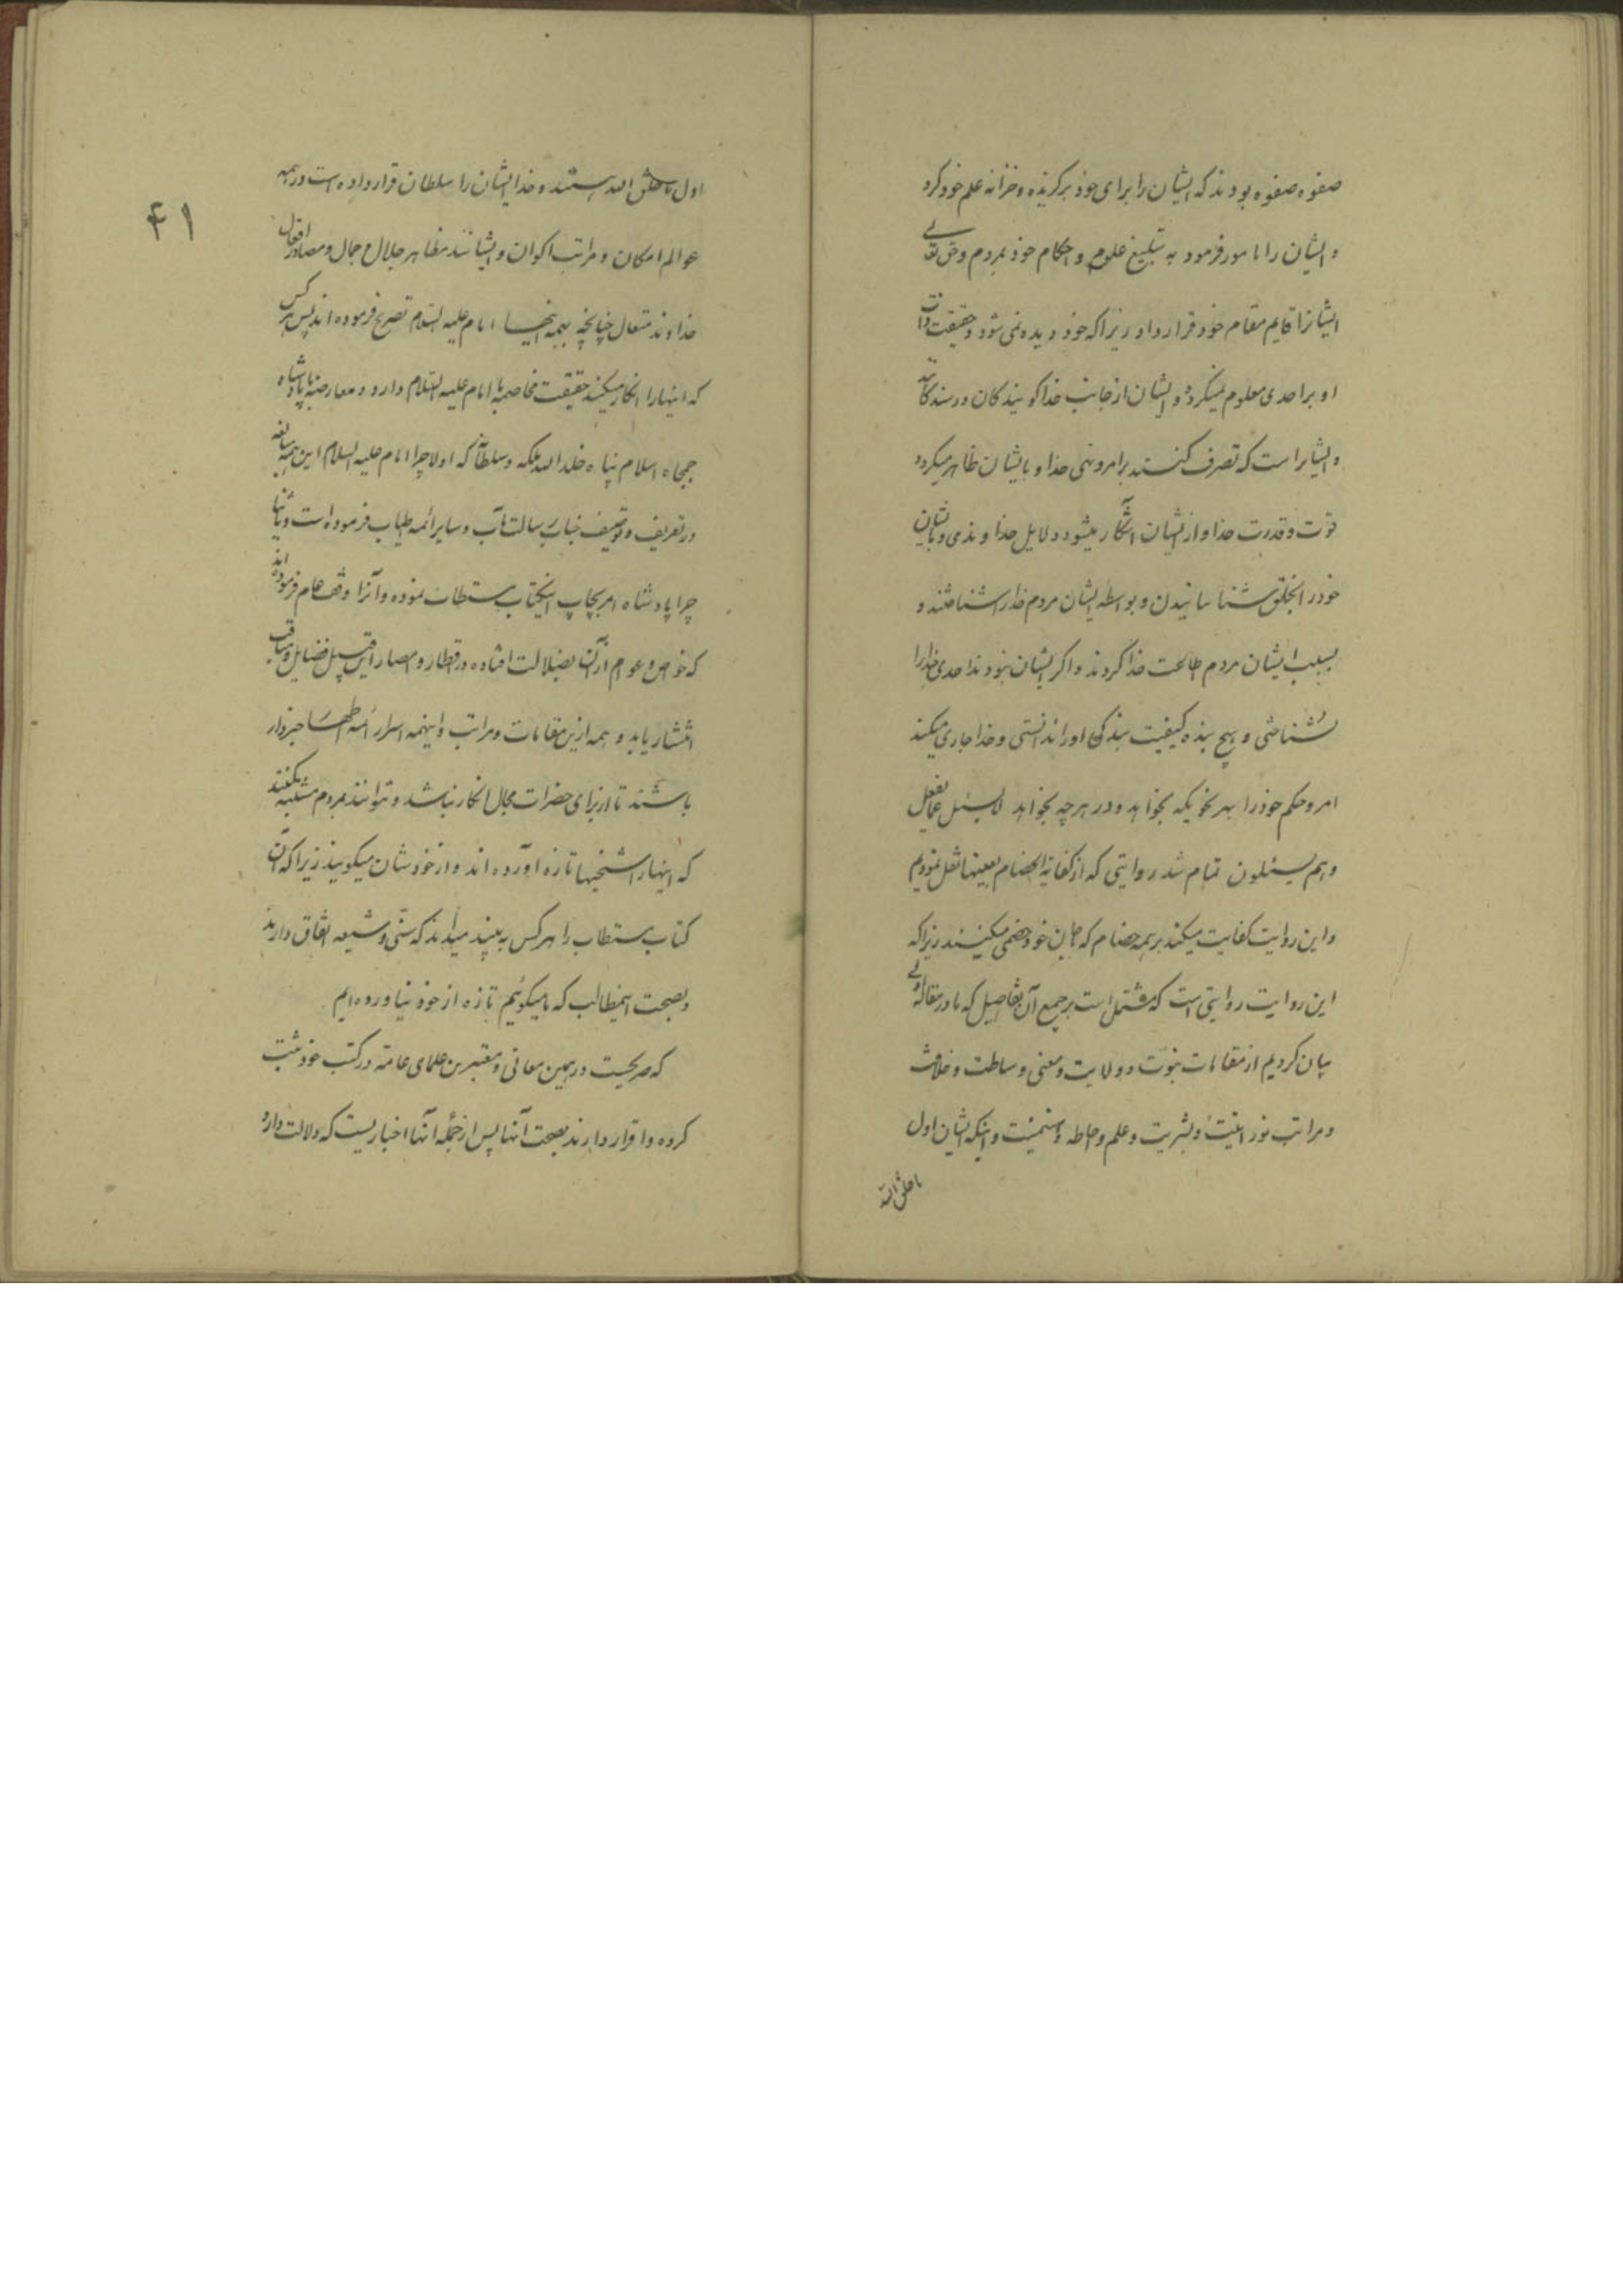 صفوه صفوه بودند که ایشان را برای خود برگزیده و خزانه علم خود کرد
و ایشان را مامور فرمود به تبلیغ علوم و احکام خود بمردم و حق تعالی
ایشانرا قایم مقام خود قرار داد زیرا که خود دیده نمی شود و حقیقت ذات
او بر احدی معلوم نمیگردد و ایشان از جانب خدا گویندگان و رسانندگانند
و ایشانراست که تصرف کنند بامر و نهی خدا و بایشان ظاهر میگردد
قوّت و قدرت خدا و از ایشان آشکار میشود دلایل خداوندی و بایشان
خود را بخلق شناسانیدن و بواسطه ایشان مردم خدا را شناختند و
بسبب ایشان مردم طاعت خدا کردند و اگر ایشان نبودند احدی خدا را
نشناختی و هیچ بنده کیفیت بندگی او را ندانستی و خدا جاری میکند
امر و حکم خود را بهر نحویکه بخواهد و در هر چه بخواهد لا یسئل عما یفعل
و هم یسئلون تمام شد روایتی که از کفایة الخصام بعینها نقل نمودیم
و این روایت کفایت میکند بر همه خصام که بجان خود خصمی میکنند زیرا که
این روایت روایتی است که مشتمل است بر جمیع آن تفاصیل که ما در مقاله اولی
بیان کردیم از مقامات نبوّت و ولایت و معنی وساطت و خلافت
و مراتب نورانیّت و بشریت و علم و احاطه و اینکه ایشان اول
ما خلق الله
۴۱
اول ما خلق الله هستند و خدا ایشان را سلطان قرار داده است در همه
عوالم امکان و مراتب اکوان و ایشانند مظاهر جلال و جمال و مصادر افعال
خداوند متعال چنانچه بهمه اینها امام علیه السلام تصریح فرموده اند پس هر کس
که اینها را انکار میکند حقیقت مخاصمه با امام علیه السلام دارد و معارضه با پادشاه
جمجاه اسلام پناه خلد الله ملکه و سلطانه که اولا چرا امام علیه السلام این همه مبالغه
در تعریف و توصیف جناب رسالت مآب و سایر ائمه اطیاب فرموده است و ثانیا
چرا پادشاه امر بچاپ اینکتاب مستطاب نموده و آنرا وقف عام فرموده اند
که خواص و عوام از آن بضلالت افتاده در اقطار و امصار این قبیل فضایل و مناقب
انتشار یابد و همه ازین مقامات و مراتب و اینهمه اسرار ائمه اطهار خبردار
باشند تا از برای حضرات مجال انکار نباشد و نتوانند بمردم مشتبه بکنند
که اینها را شیخیها تازه آورده اند و از خودشان میگویند زیرا که آن
کتاب مستطاب را هر کس به بیند میداند که سنّی و شیعه اتفاق دارند
بصحت اینمطالب که ما میگوئیم تازه از خود نیاورده ایم
که صریحست در همین معانی و معتبرین علمای عامّه در کتب خود ثبت
کرده و اقرار دارند بصحت آنها پس از جمله آنها اخباریست که دلالت دارد